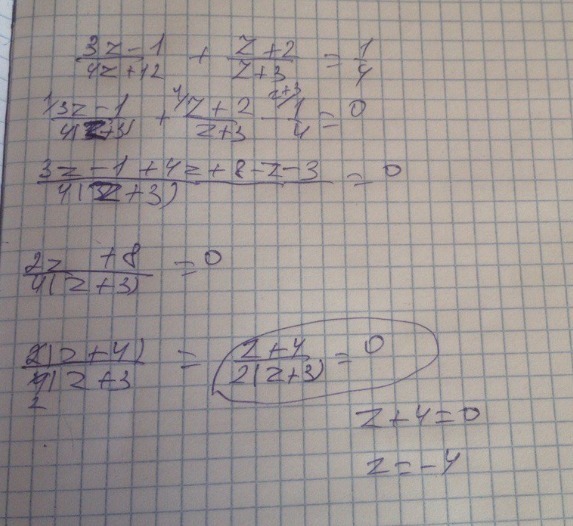 (3z-1)/(4z+12) + (z+2)/(z+3) = 1/4
1/ (3z-1)/(4(z+3)) + 4/ (z+2)/(z+3) - z+3/ 1/4 = 0
(3z-1+4z+8-z-3)/(4(z+3)) = 0
(2z +8)/(4(z+3)) = 0
2(z+4)/4(z+3 2 = (z+4)/(2(z+3)) = 0
z+4=0
z=-4